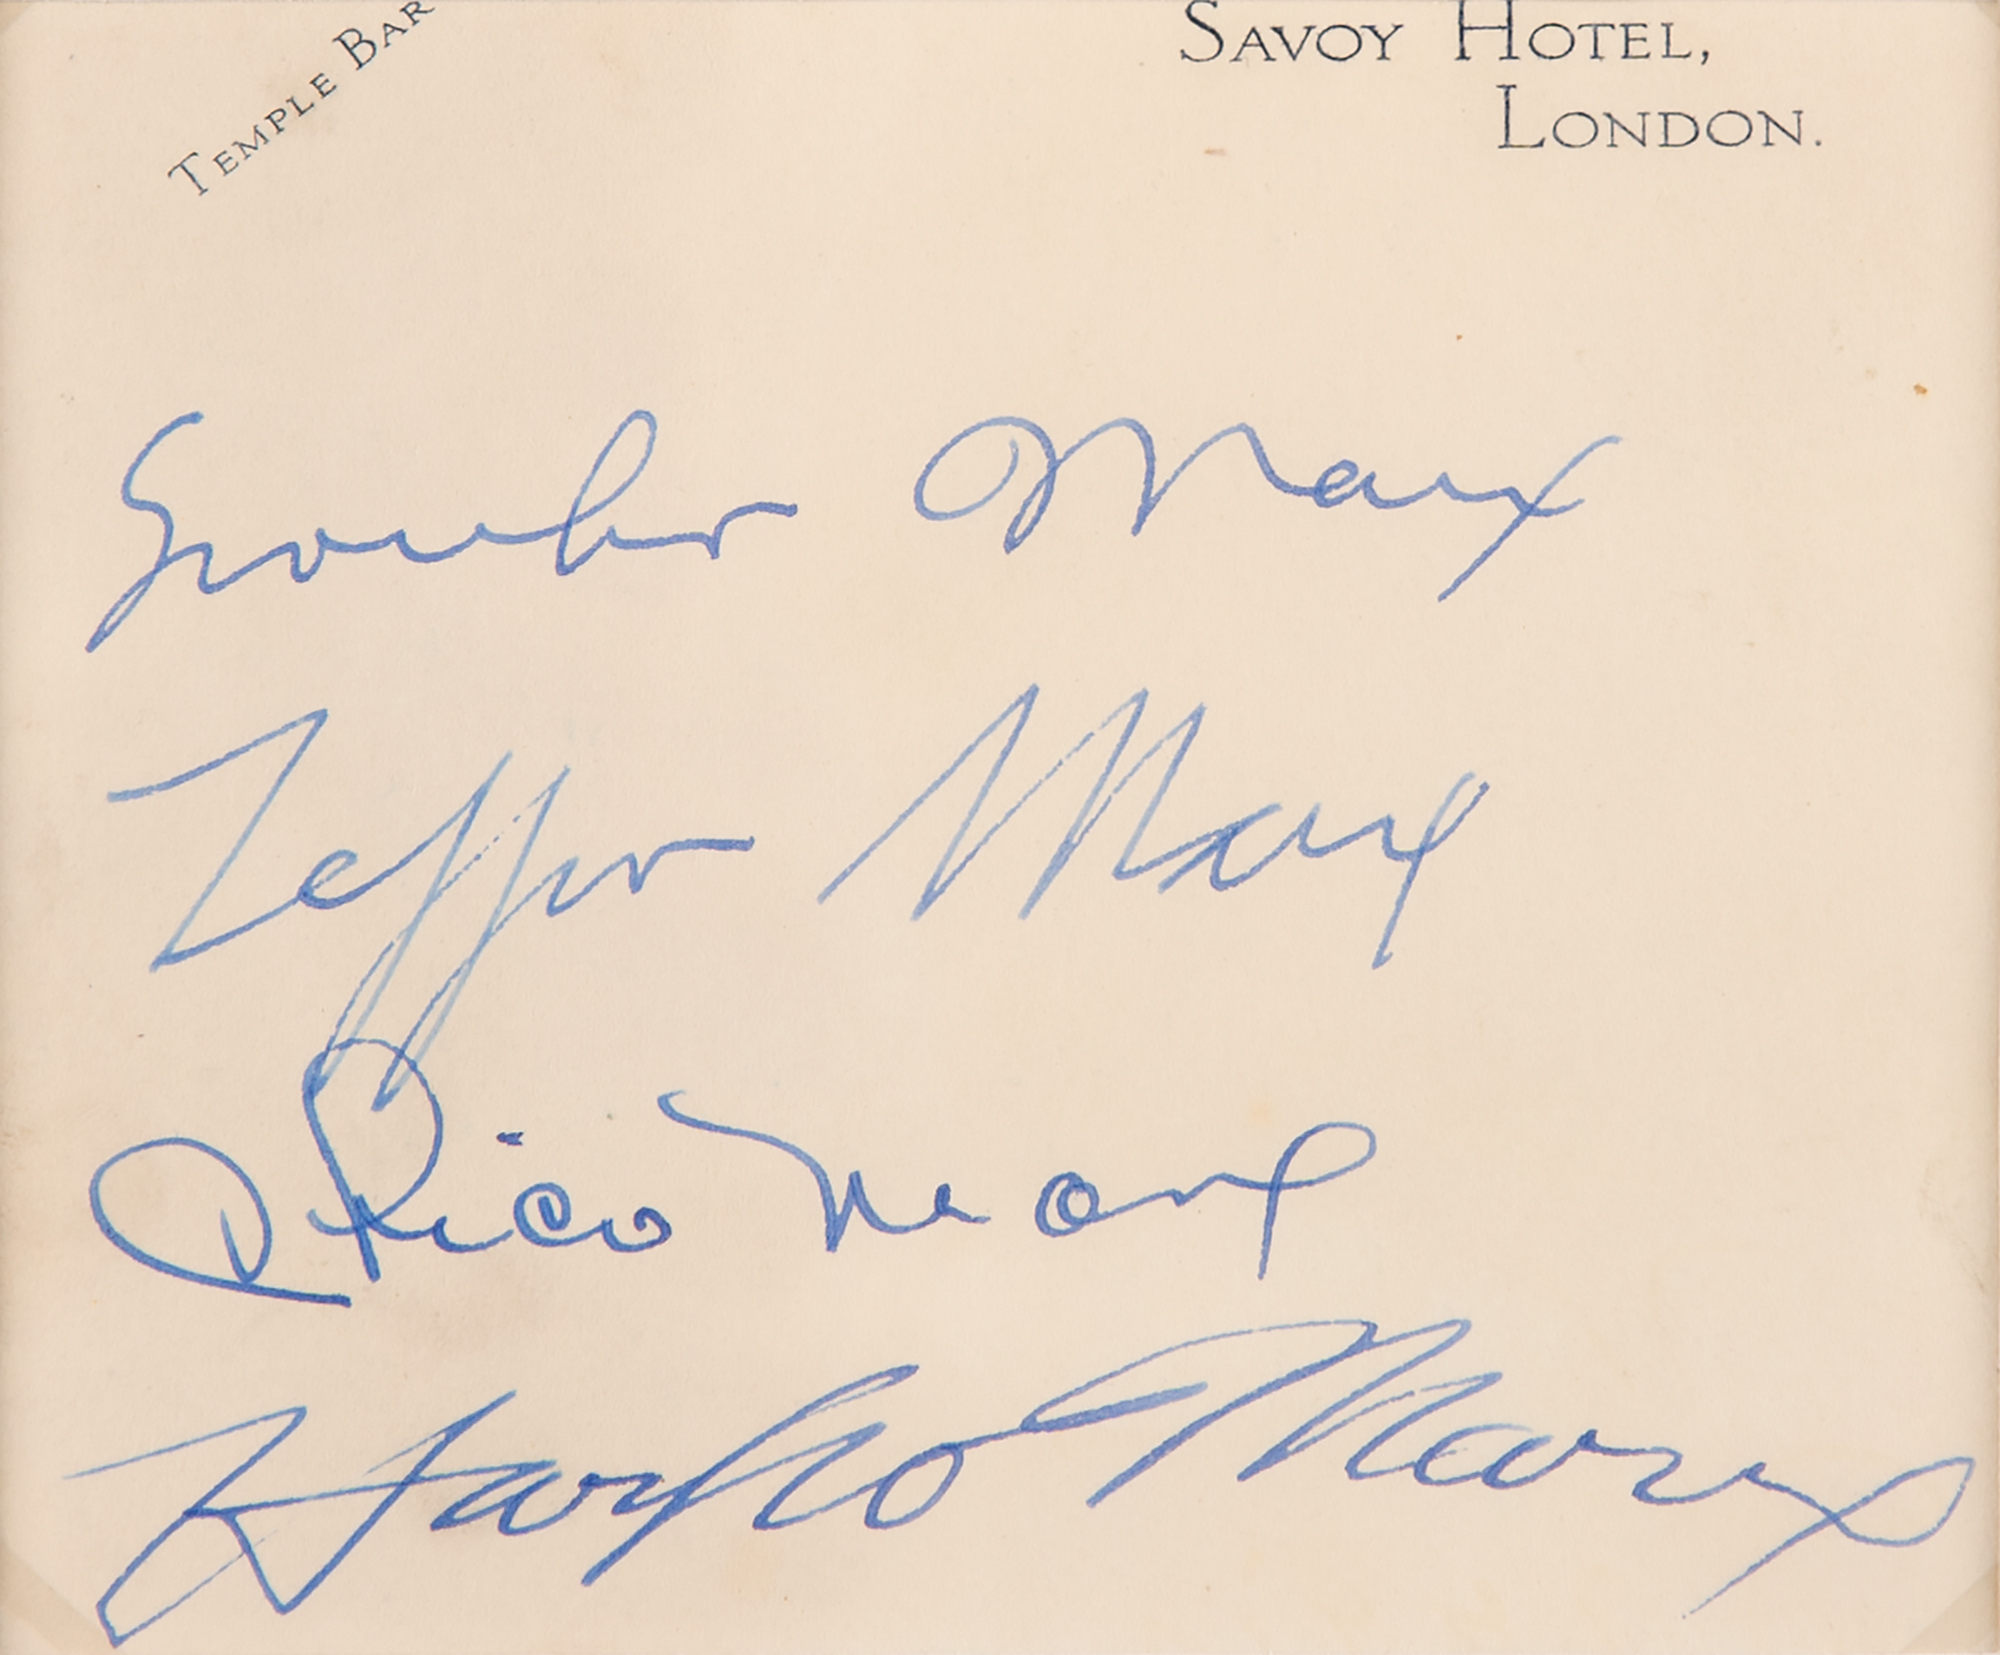 TEMPLE BAR
SAVOY HOTEL,
LONDON.
Groucho Marx
Zeppo Marx
Chico Marx
Harpo Marx